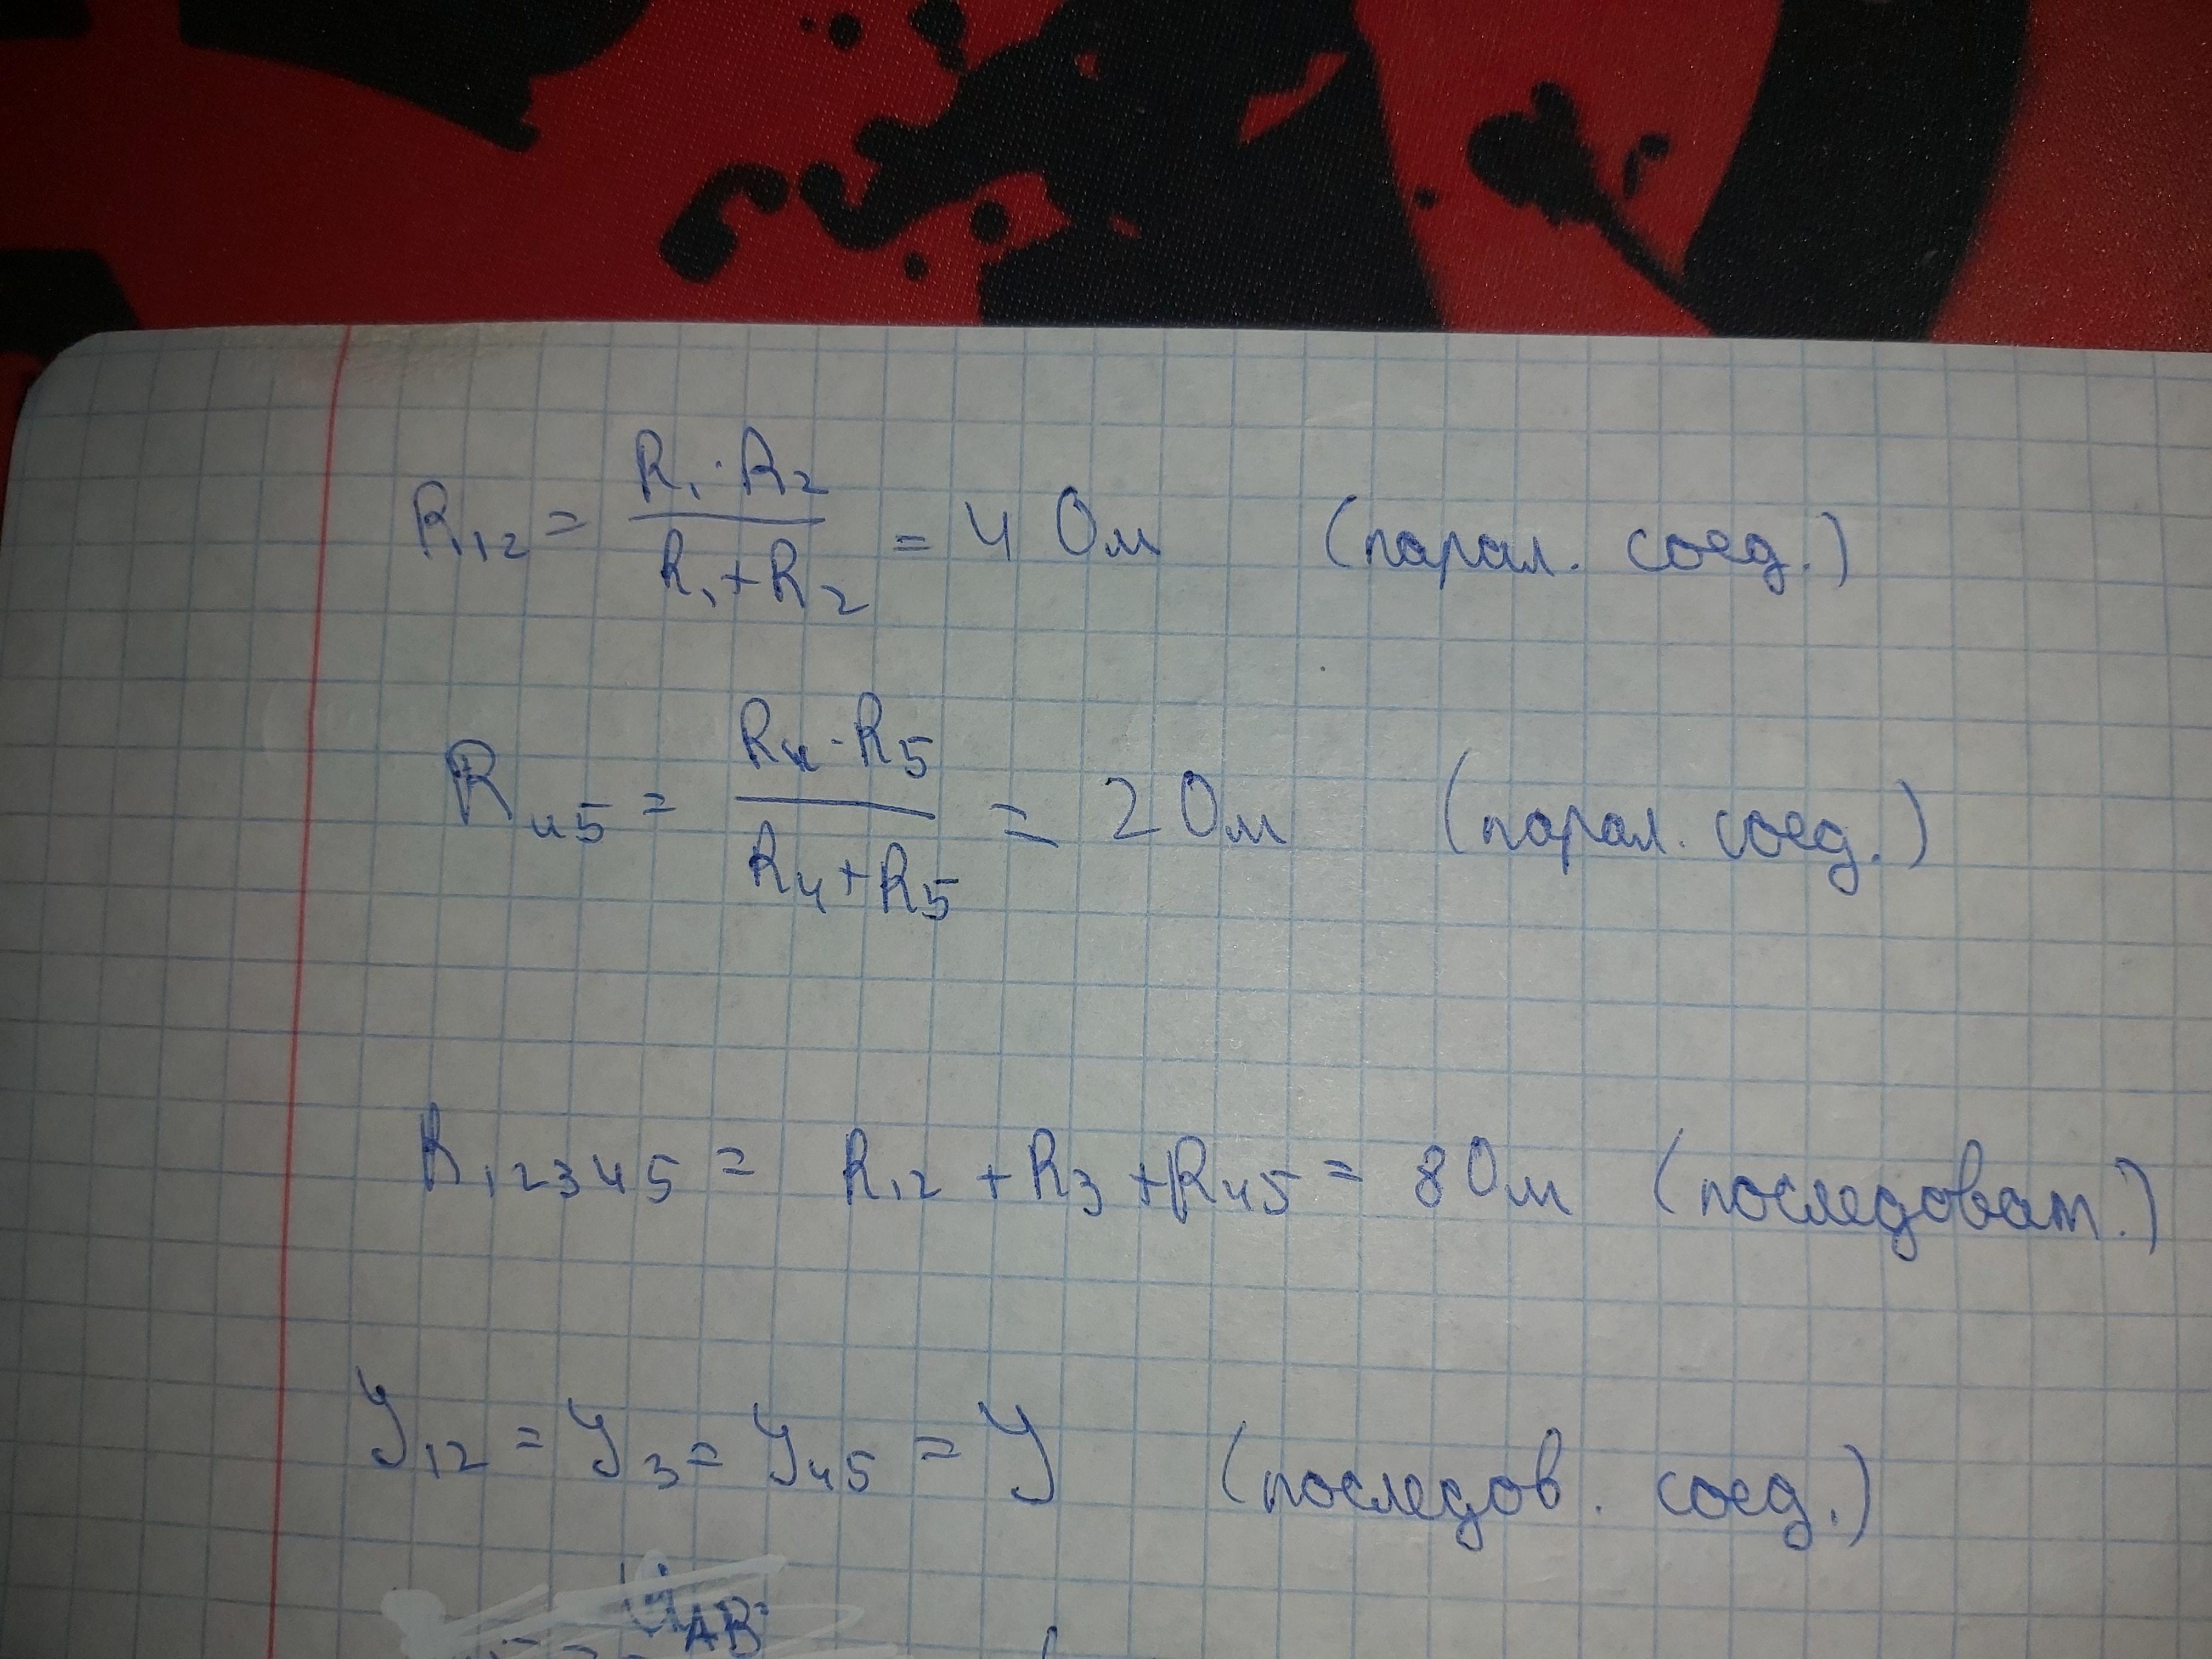 R₁₂ = R₁·R₂ / R₁+R₂ = 4 Ом (парал. соед.)
R₄₅ = R₄·R₅ / R₄+R₅ = 2 Ом (парал. соед.)
R₁₂₃₄₅ = R₁₂ + R₃ + R₄₅ = 8 Ом (последоват.)
У₁₂ = У₃ = У₄₅ = У (последов. соед.)
АВ